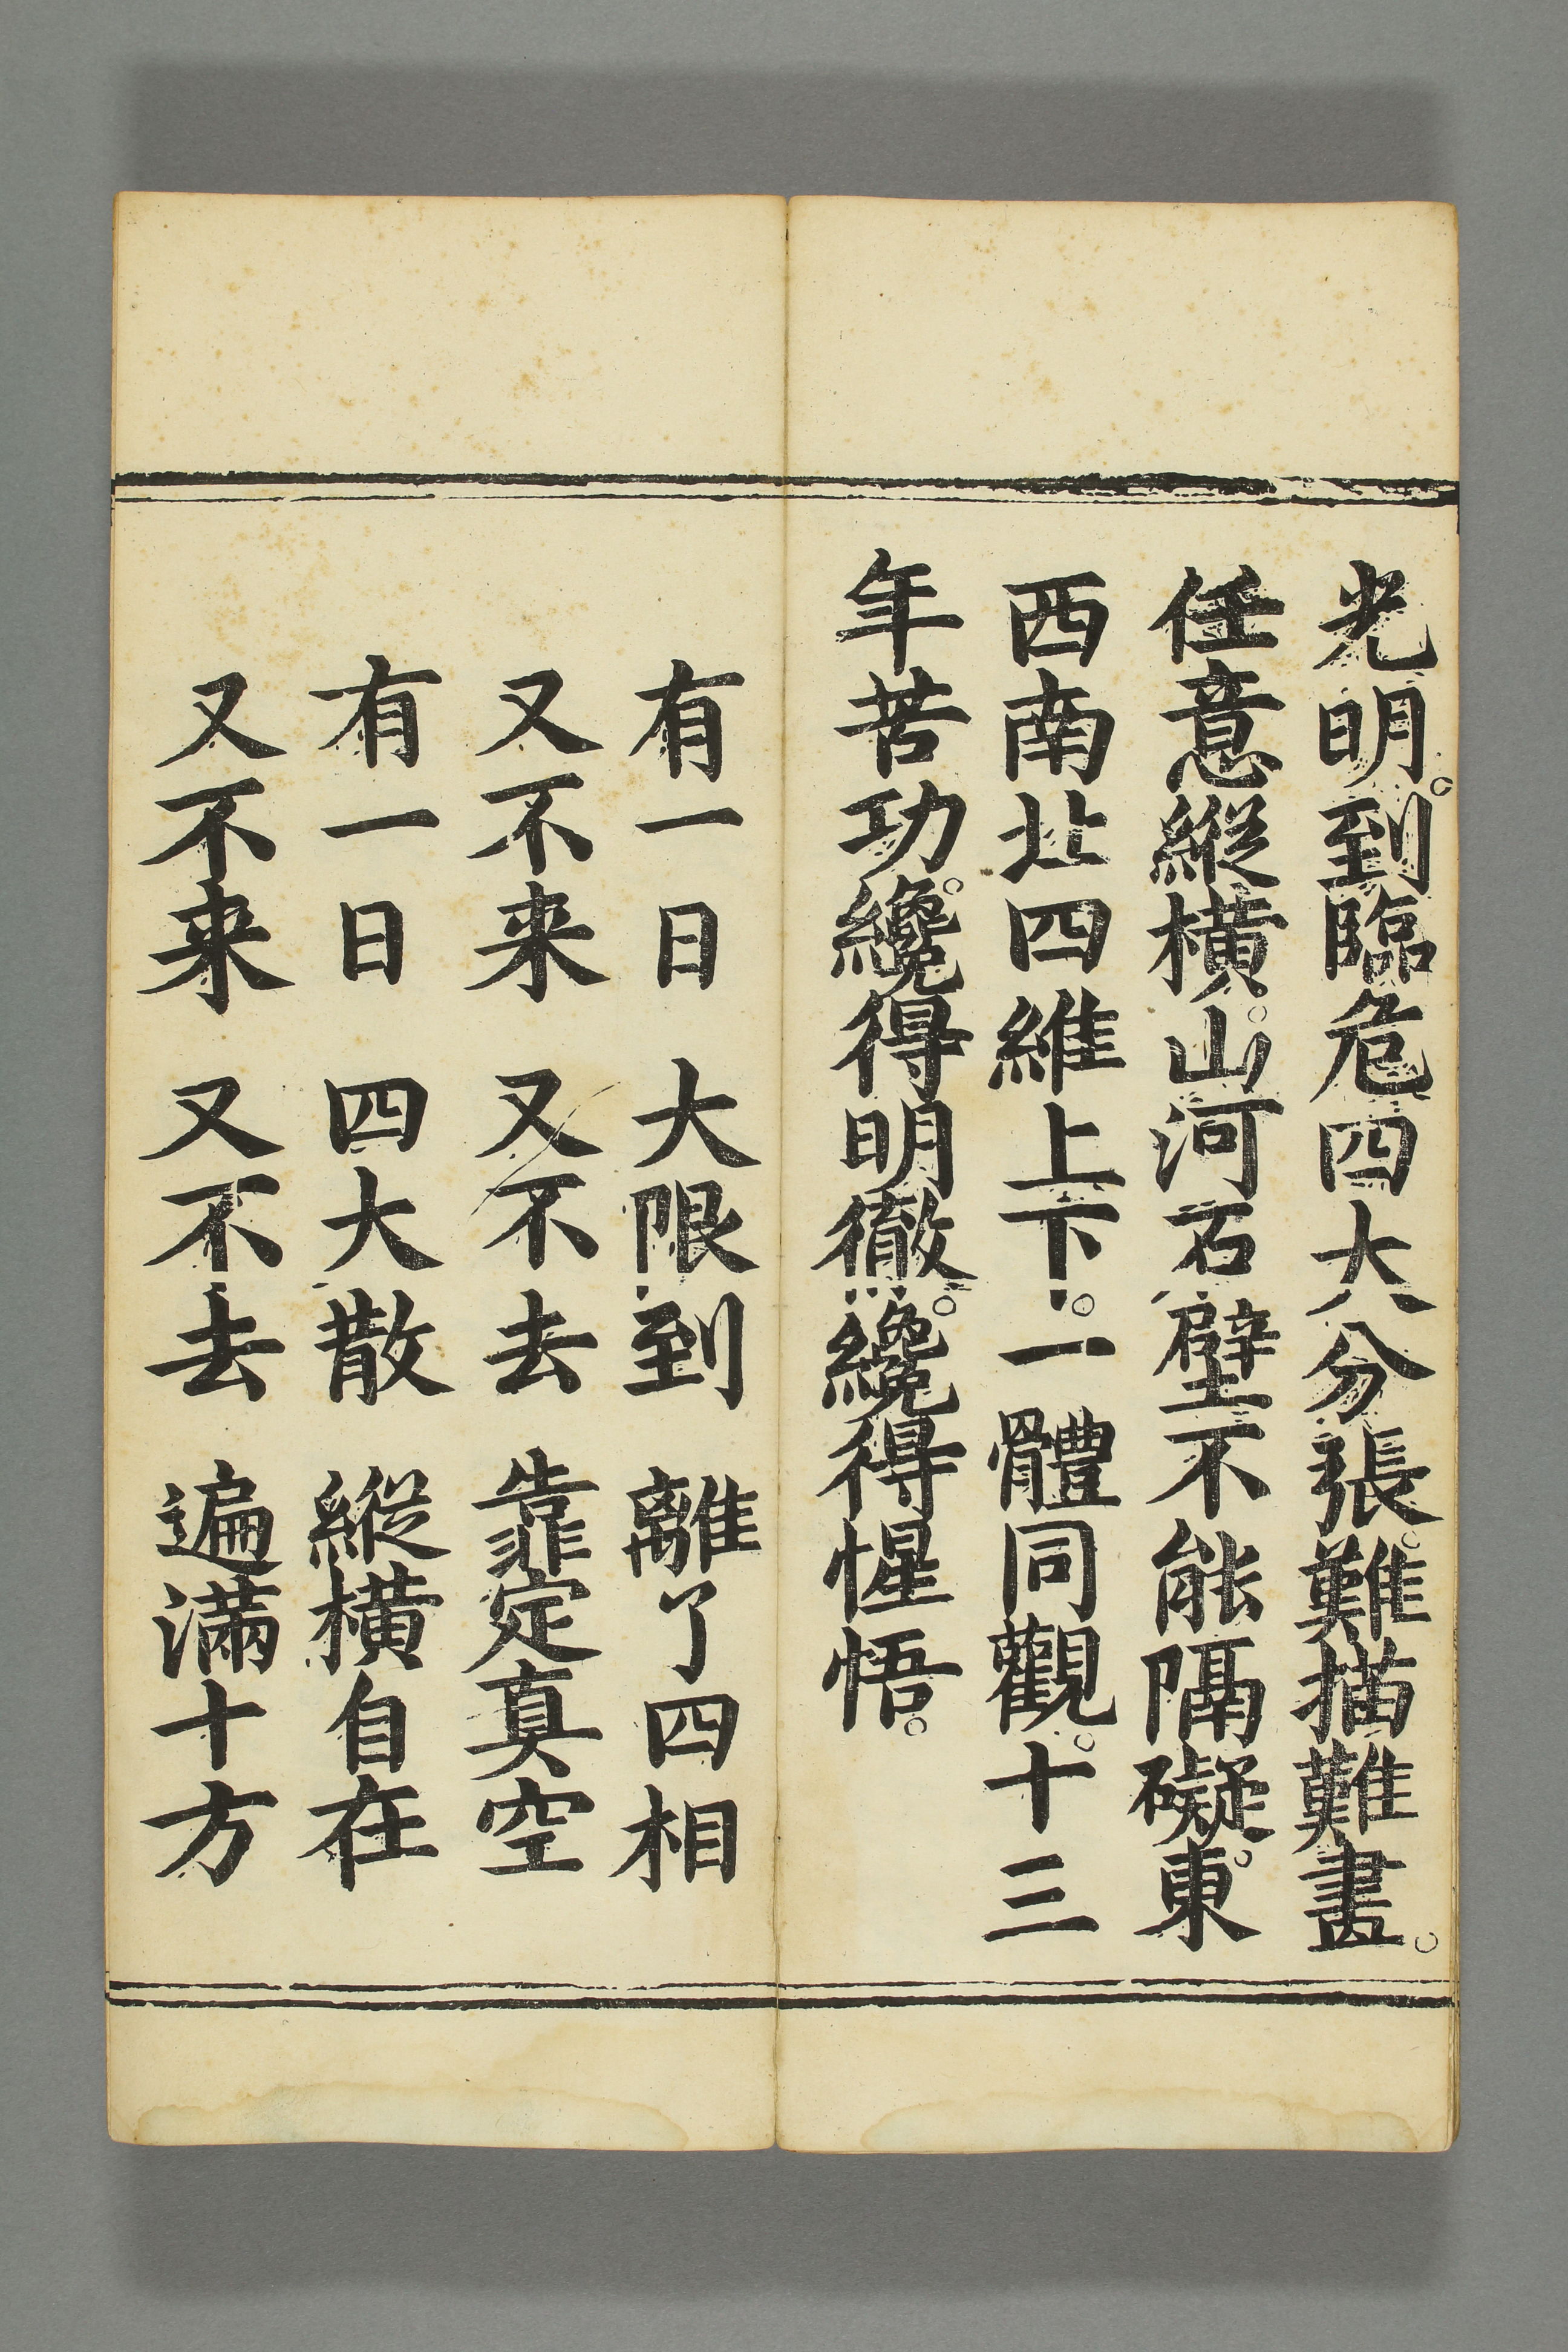 光明。到臨危四大分張。難描難畫。
任意縱橫。山河石壁不能隔礙。東
西南北四維上下。一體同觀。十三
年苦功。纔得明徹。纔得惺悟。
有一日　大限到　離了四相
又不来　又不去　靠定真空
有一日　四大散　縱橫自在
又不来　又不去　遍滿十方